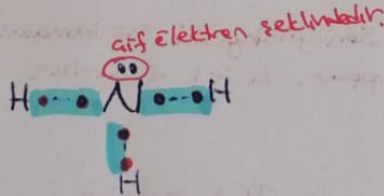 çift élektron şeklindedir.
H N H
H